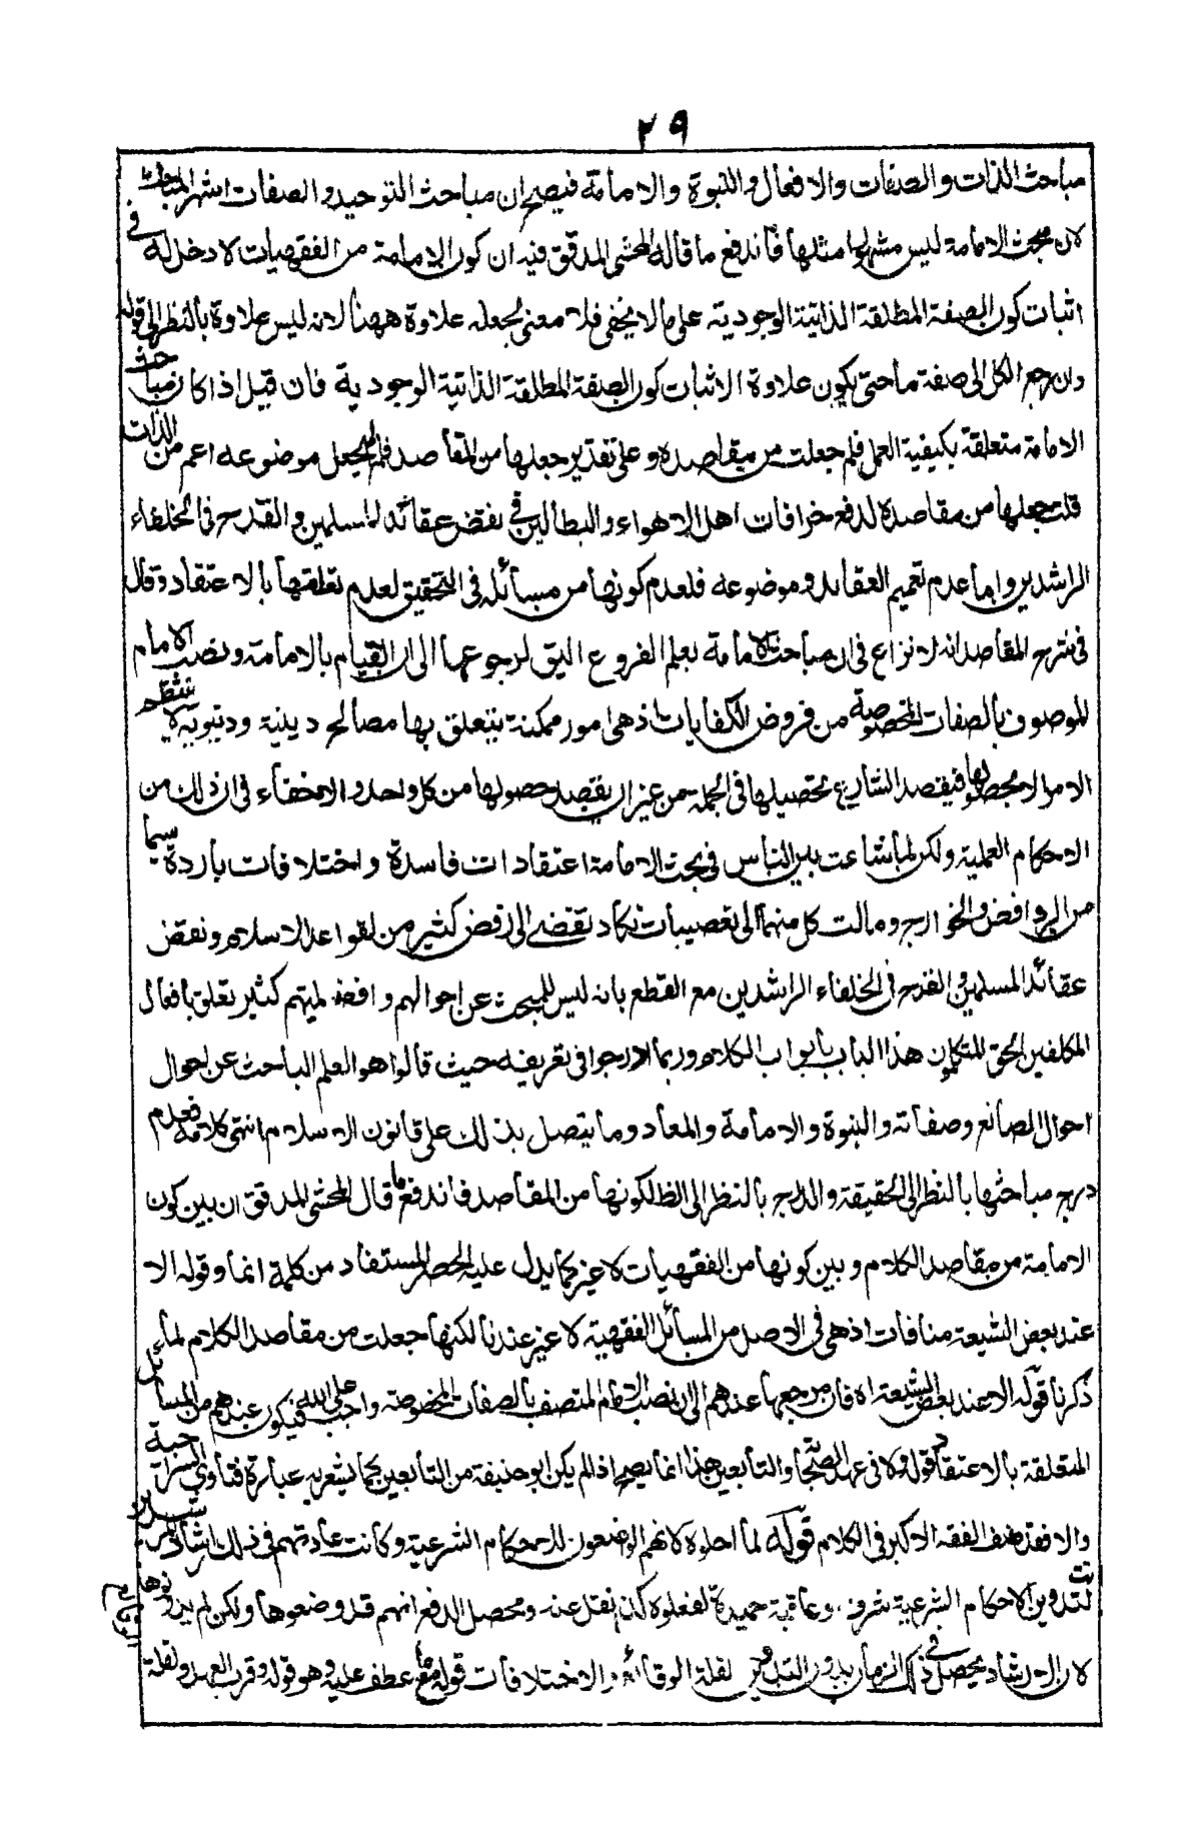 ٢٩
مباحث الذات والصفات والافعال والنبوة والامامة فيصح ان مباحث التوحيد والصفات اشهر المباحث
لان مبحث الامامة ليس مشهورا مثلها فاندفع ما قاله المحشى المدقق فيه ان كون الامامة من الفقهيات لا دخل له فى
اثبات كون الصفة المطلقة الذاتية الوجودية على ما لا يخفى فلا معنى لجعله علاوة ههنا لانه ليس علاوة بالنظر الى قوله
وان رجع الكل الى صفة ما حتى يكون علاوة الاثبات كون الصفة المطلقة الذاتية الوجودية فان قيل اذا كان مباحث
الامامة متعلقة بكيفية العمل فلم جعلت من مقاصده وعلى تقدير جعلها من المقاصد فلم لم يجعل موضوعه اعم من الذات
قلت جعلها من مقاصده لدفع خرافات اهل الاهواء والبطالين فى نقض عقائد المسلمين والقدح فى الخلفاء
الراشدين واما عدم تعميم العقايد وموضوعه فلعدم كونها من مسائله فى التحقيق لعدم تعلقها بالاعتقاد وقال
فى شرح المقاصد انه لا نزاع فى ان مباحث الامامة بعلم الفروع اليق لرجوعها الى ان القيام بالامامة ونصب الامام
الموصوف بالصفات المخصوصة من فروض الكفايات اذ هى امور ممكنة يتعلق بها مصالح دينية ودنيوية لا ينتظم
الامر الا بحصولها فيقصد الشارع تحصيلها فى الجملة من غير ان يقصد حصولها من كل واحد ولا خفاء فى ان ذلك من
الاحكام العملية ولكن لما شاعت بين الناس فى بحث الامامة اعتقادات فاسدة واختلافات باردة سيما
من الروافض والخوارج ومالت كل منهما الى تعصيبات تكاد تفضى الى رفض كثير من لقواعد الاسلام ونقض
عقائد المسلمين والقدح فى الخلفاء الراشدين مع القطع بانه ليس للبحث عن احوالهم وافضليتهم كثير تعلق بافعال
المكلفين الحق المتكلمون هذا الباب بابواب الكلام وربما ادرجوا فى تعريفه حيث قالوا هو العلم الباحث عن احوال
احوال الصانع وصفاته والنبوة والامامة والمعاد وما يتصل بذلك على قانون الاسلام انتهى كلامه فعدم
درج مباحثها بالنظر الى الحقيقة والدرج بالنظر الى الظ لكونها من المقاصد فاندفع ما قال المحشى المدقق ان بين كون
الامامة من مقاصد الكلام وبين كونها من الفقهيات لا غير كما يدل عليه الحصر المستفاد من كلمة انما وقوله الا
عند بعض الشيعة منافات اذ هى فى الاصل من المسائل الفقهية لا غير عندنا لكنها جعلت من مقاصد الكلام لما
ذكرنا قوله الا عند بعض الشيعة اه فان مرجعها عندهم الى ان نصب الامام المتصف بالصفات المخصوصة واجب على الله فيكون عندهم من المسائل
المتعلقة بالاعتقاد قوله ولا فى عهد الصحابة والتابعين هذا انما يصح اذا لم يكن ابو حنيفة من التابعين كما يشعر به عبارة فتاوى السراجية
والا فقد صنف الفقه الاكبر فى الكلام قوله لما احلوه لانهم الواضعون للاحكام الشرعية وكانت عادتهم فى ذلك ارشاد المسترشدين
لتدوين الاحكام الشرعية شرف وعاقبة حميدة لفعلوه لكن نقل عنه ومحصل الدفع انهم قد وضعوها ولكن لم يدونوها
لان الارشاد يحصل فى ذلك الزمان بدون التدوين لقلة الوقائع والاختلافات قوله مع عطف عليه وهو قوله وقرب العهد ولقلة